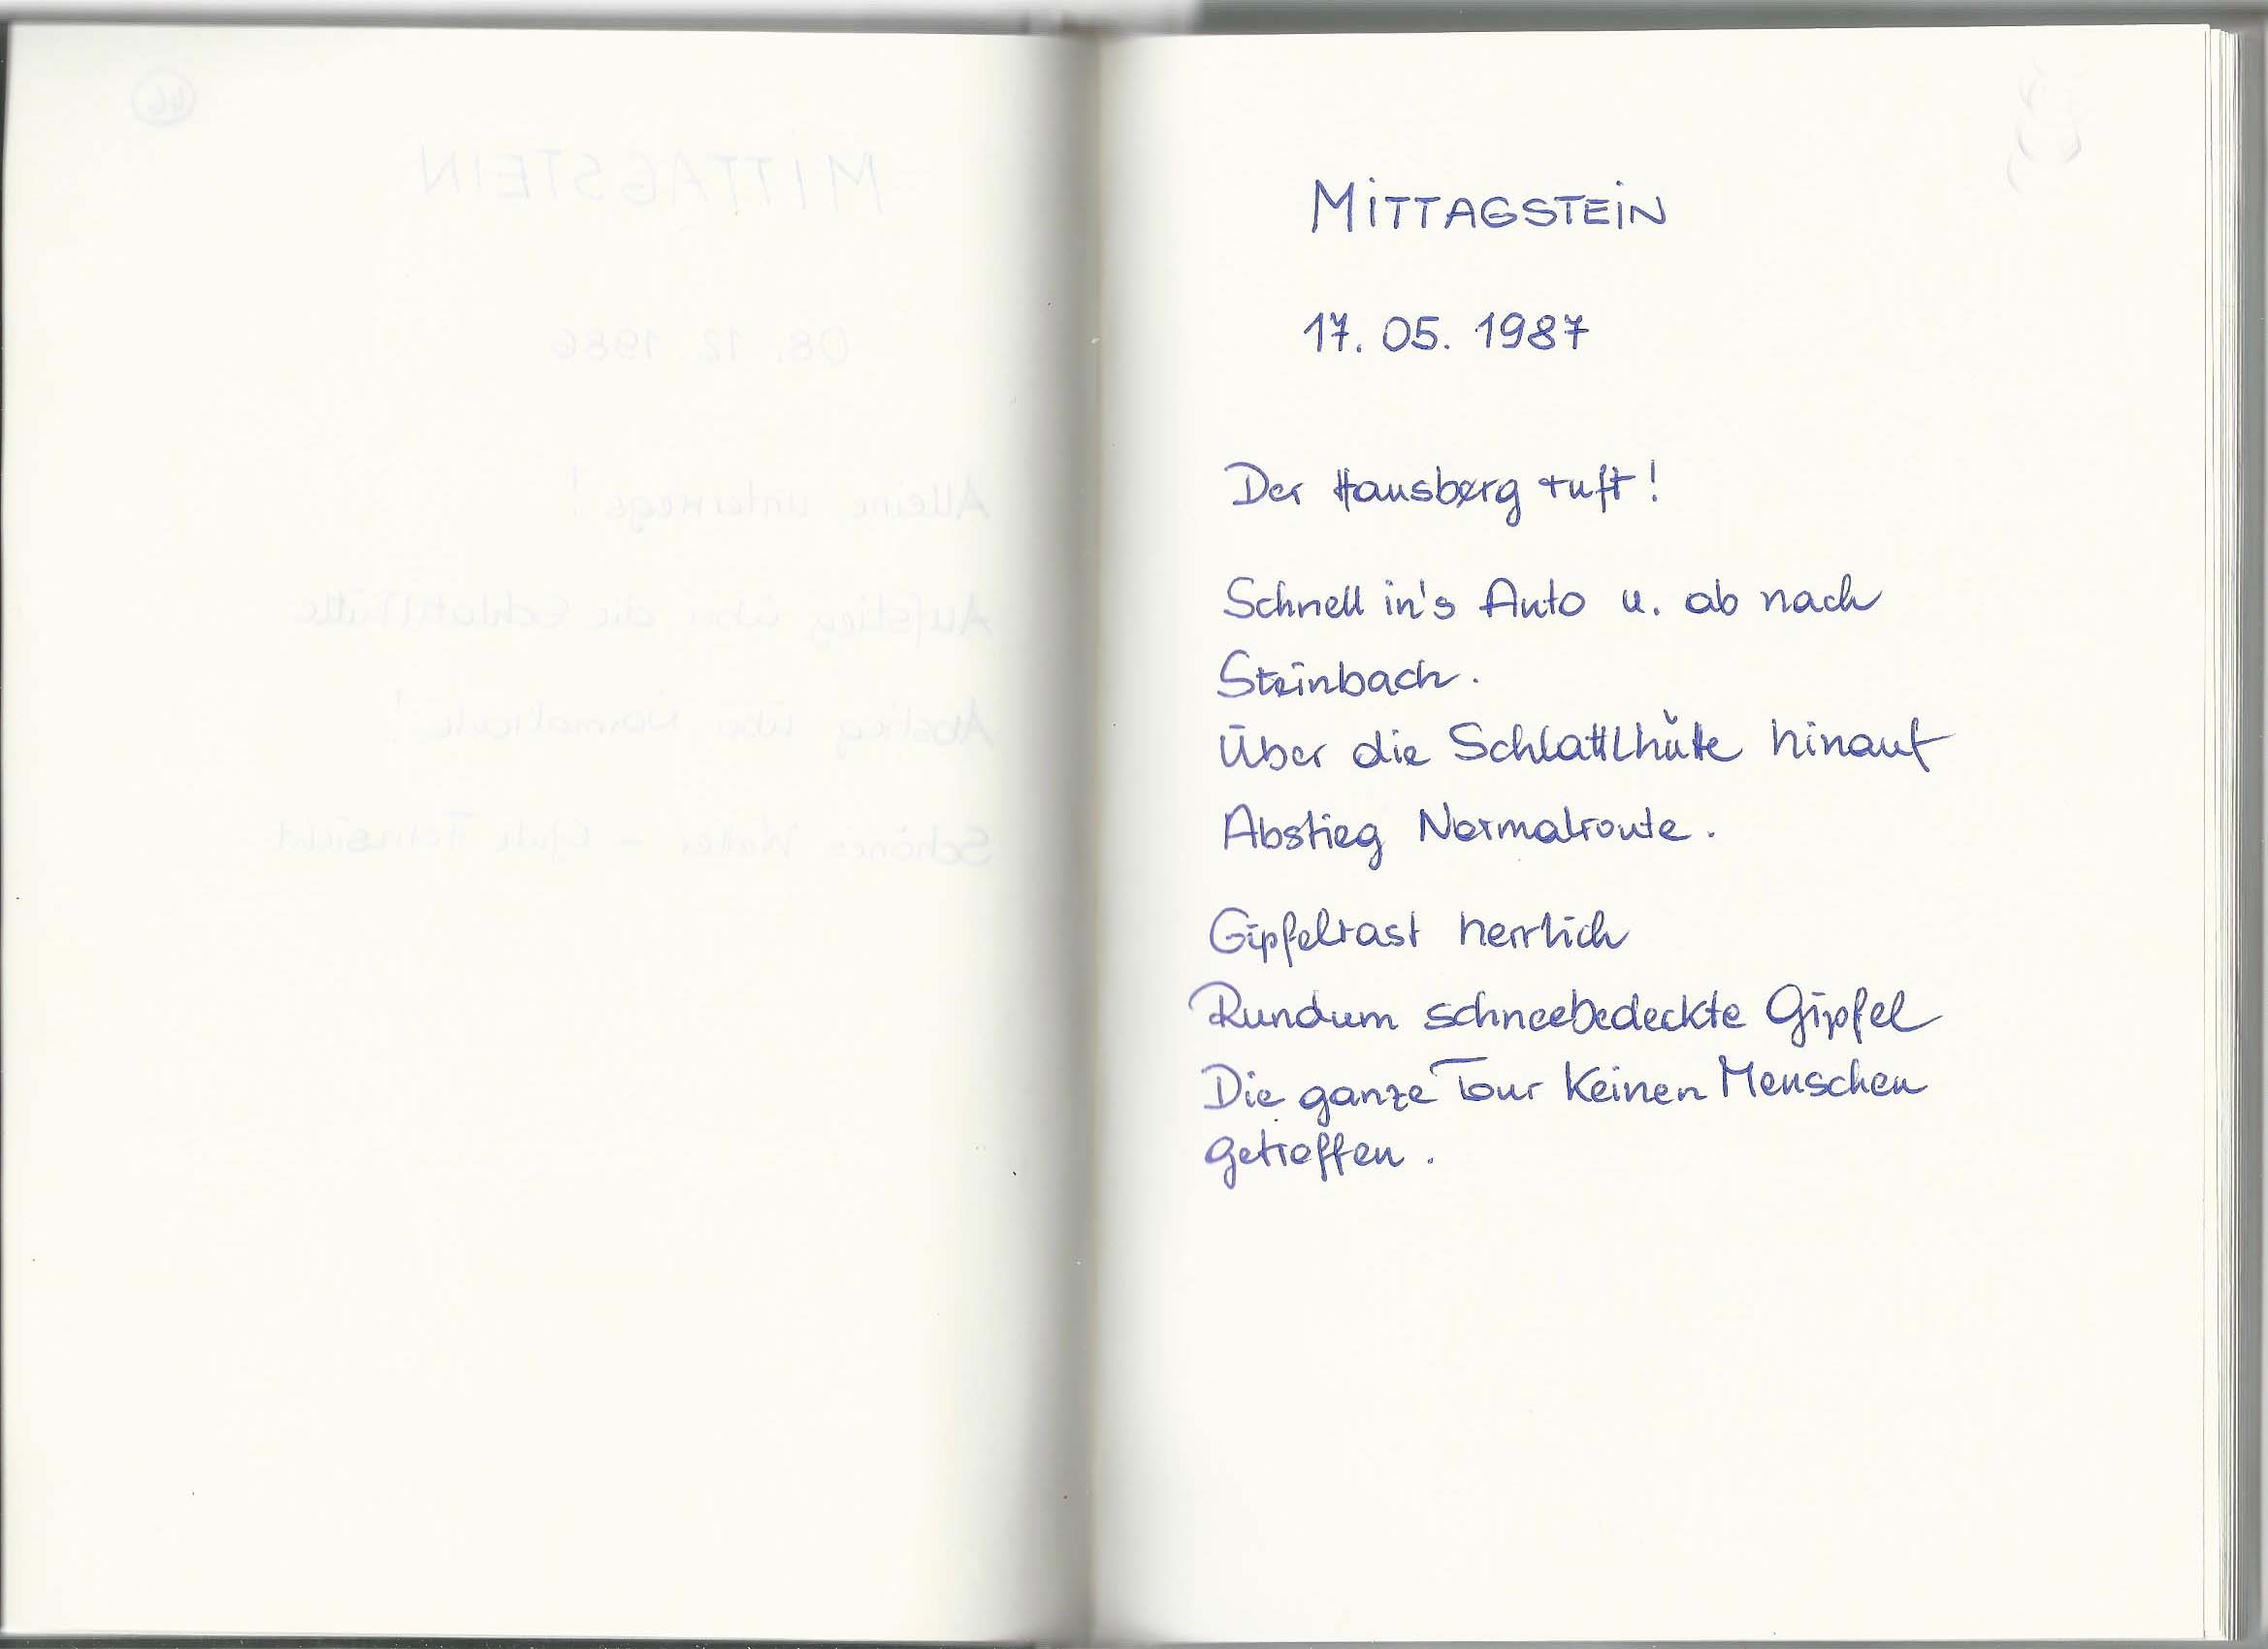 MITTAGSTEIN
17. 05. 1987
Der Hausberg ruft!
Schnell in's Auto u. ab nach
Steinbach.
Über die Schlattlhütte hinauf
Abstieg Normalroute.
Gipfelrast herrlich
Rundum schneebedeckte Gipfel
Die ganze Tour keinen Menschen
getroffen.